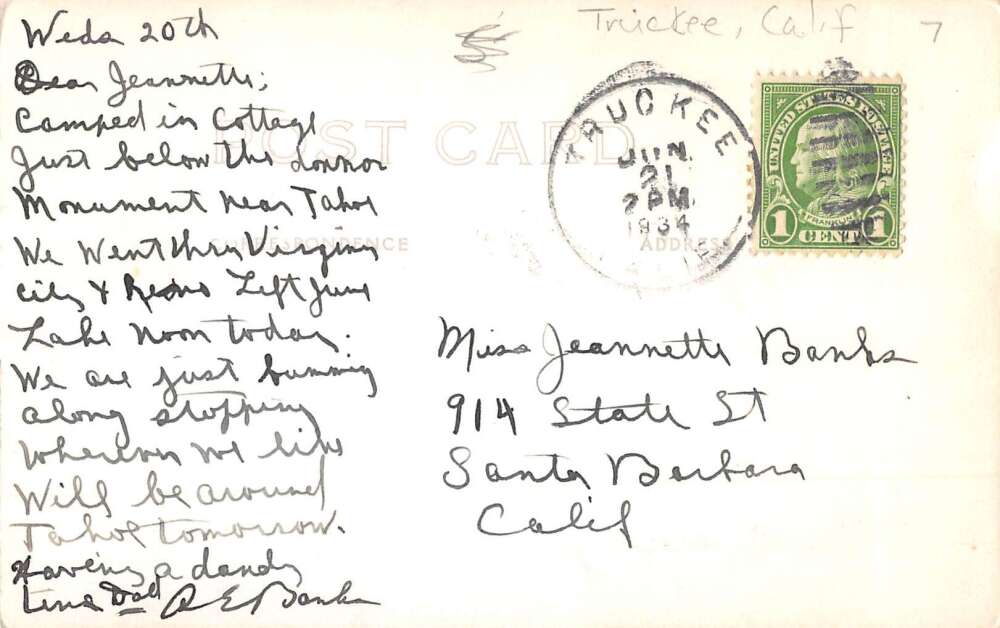 Truckee, Calif 7
Weds 20th
Dear Jeannette;
Camped in Cottage
Just below the Donnor
Monument near Tahoe
We Went thru Virginia
City & Reno Left June
Lake Noon today.
We are just bumming
along stopping
wherever we like
Will be around
Tahoe tomorrow.
Having a dandy
time A E Banks
POST CARD
CORRESPONDENCE
ADDRESS
TRUCKEE
JUN
21
2 PM
1934
UNITED STATES POSTAGE
FRANKLIN
1 CENT 1
Miss Jeannette Banks
914 State St
Santa Barbara
Calif